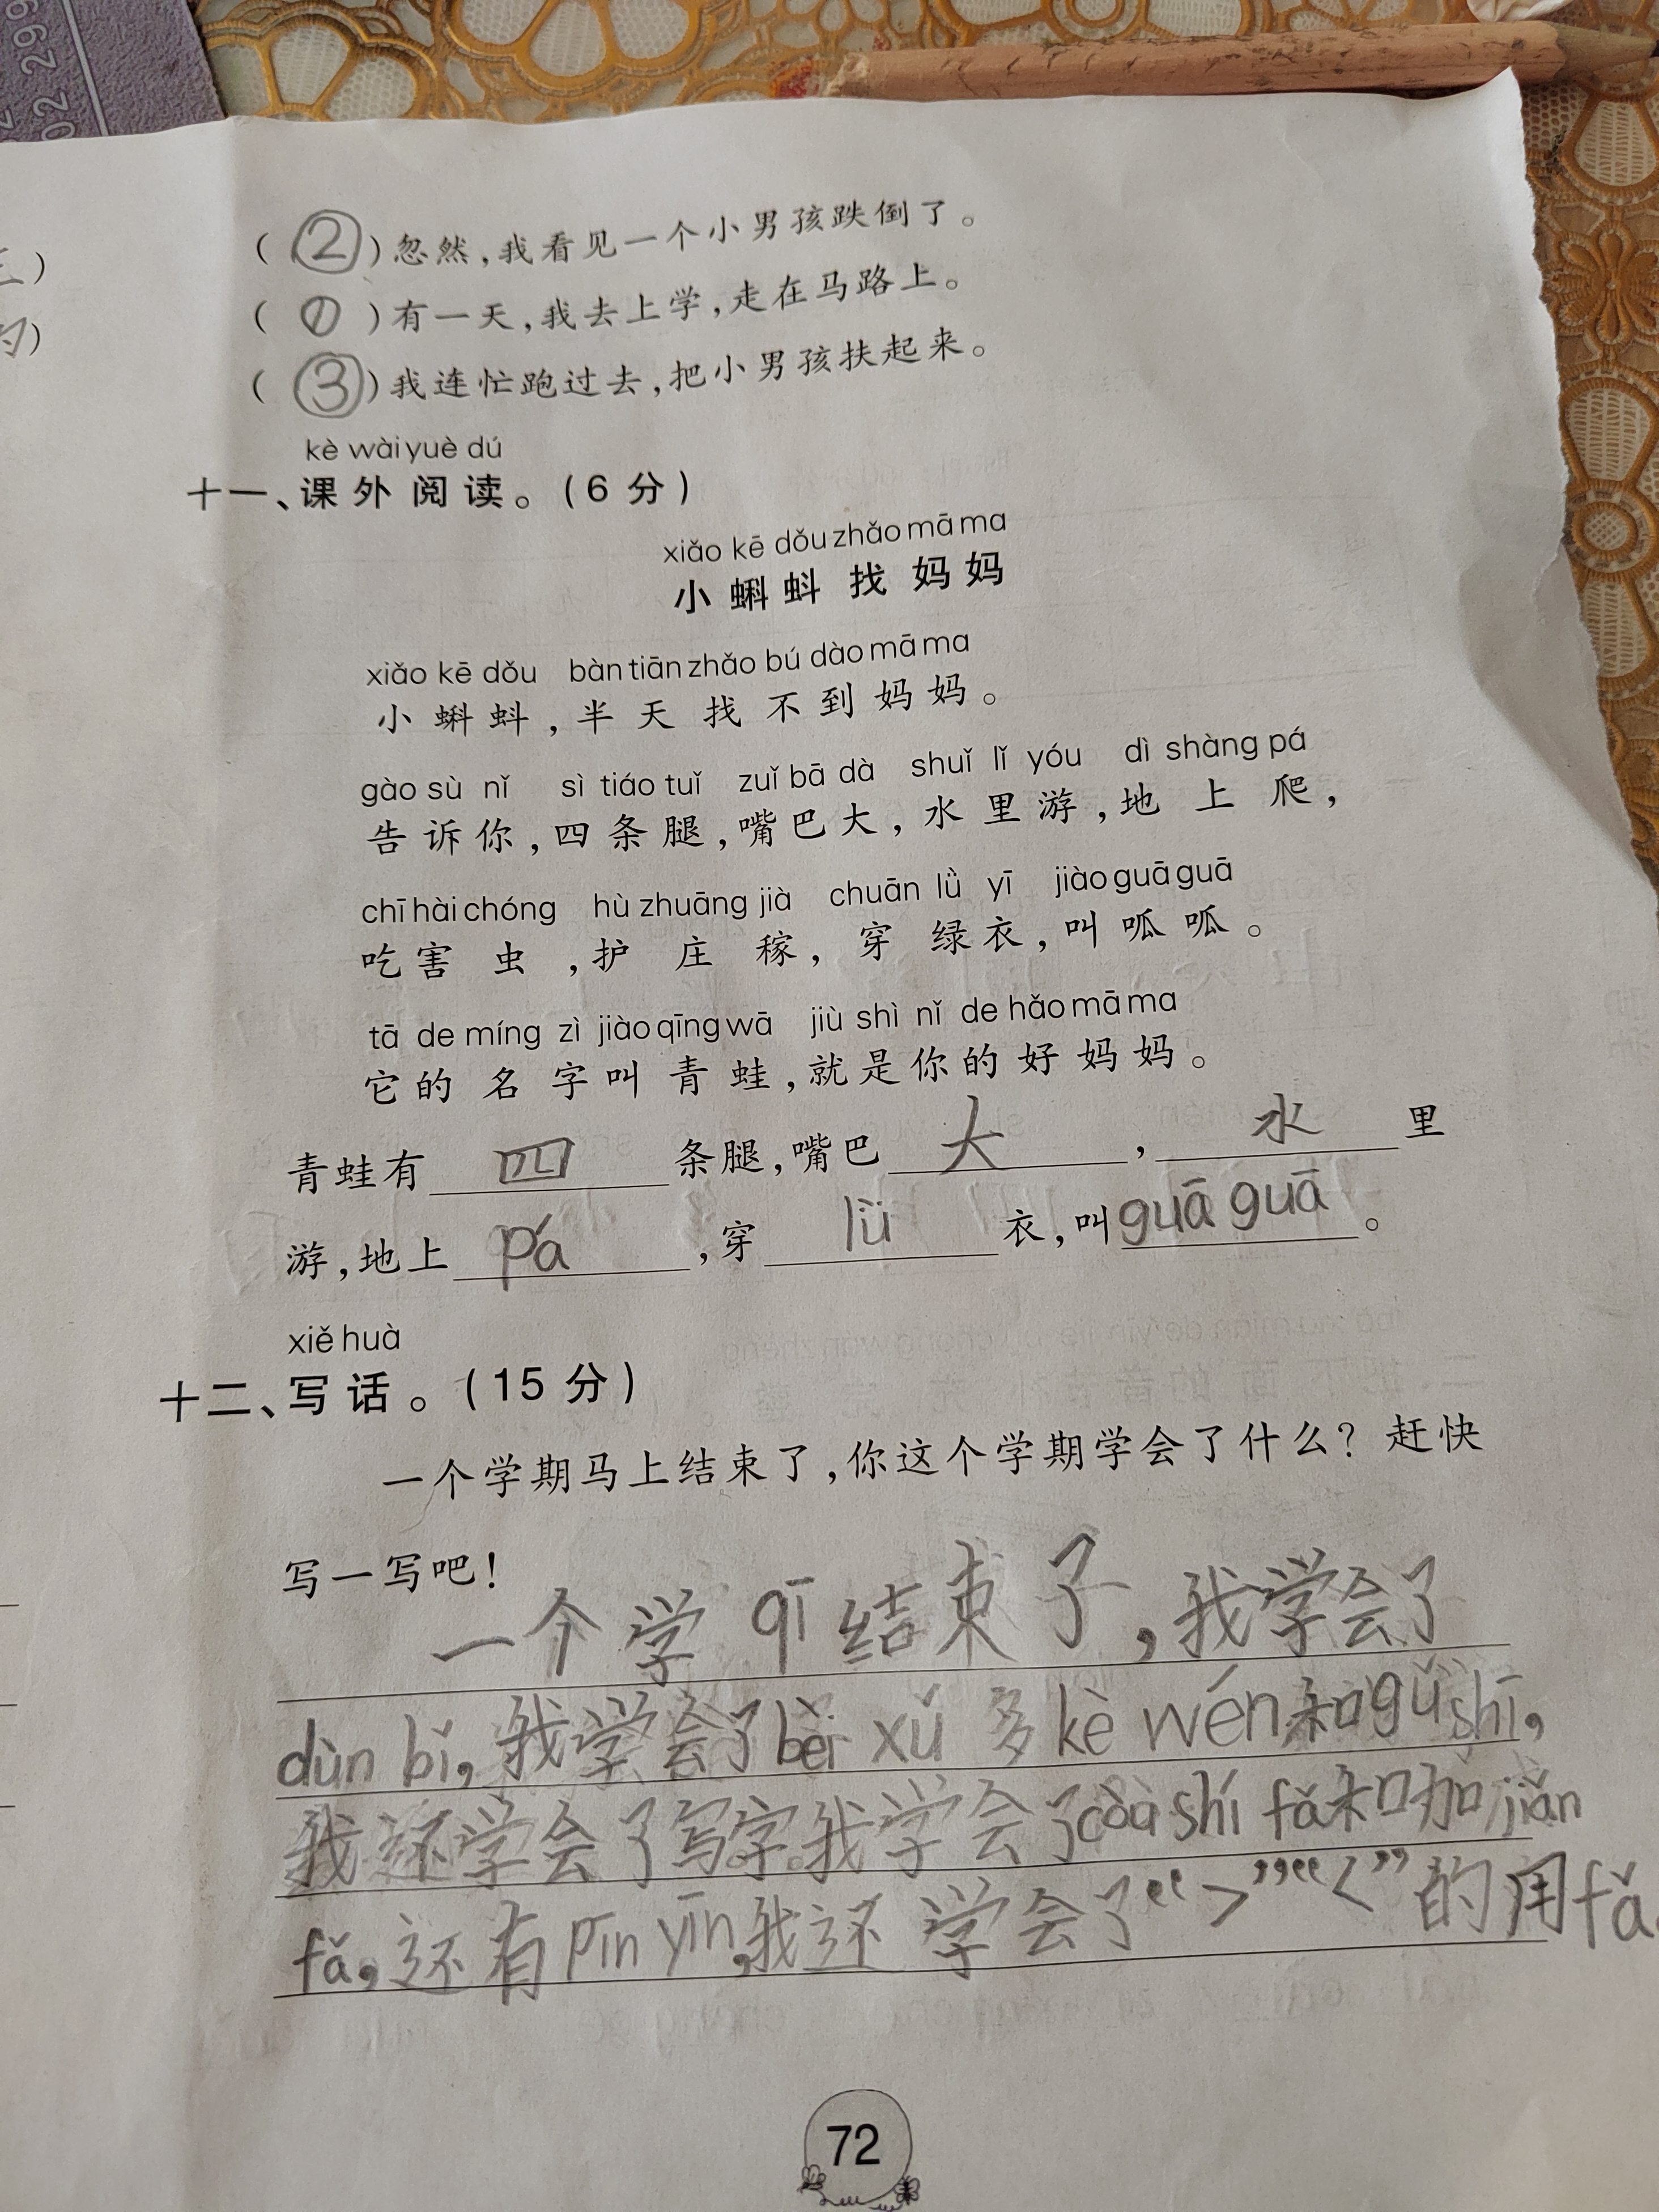 02 299
( ② )忽然,我看见一个小男孩跌倒了。
( ① )有一天,我去上学,走在马路上。
( ③ )我连忙跑过去,把小男孩扶起来。
kè wài yuè dú
十一、课外阅读。(6分)
xiǎo kē dǒu zhǎo mā ma
小蝌蚪找妈妈
xiǎo kē dǒu bàn tiān zhǎo bú dào mā ma
小蝌蚪,半天找不到妈妈。
gào sù nǐ sì tiáo tuǐ zuǐ bā dà shuǐ lǐ yóu dì shàng pá
告诉你,四条腿,嘴巴大,水里游,地上爬,
chī hài chóng hù zhuāng jià chuān lǜ yī jiào guā guā
吃害虫,护庄稼,穿绿衣,叫呱呱。
tā de míng zì jiào qīng wā jiù shì nǐ de hǎo mā ma
它的名字叫青蛙,就是你的好妈妈。
青蛙有 四 条腿,嘴巴 大 , 水 里
游,地上 pá ,穿 lǜ 衣,叫 guā guā 。
xiě huà
十二、写话。(15分)
一个学期马上结束了,你这个学期学会了什么?赶快
写一写吧!
一个学 qī 结束了,我学会了
dùn bǐ,我学会了bèi xǔ 多 kè wén 和 gǔ shī,
我还学会了写字。我学会了còu shí fǎ 和加 jiǎn
fǎ,还有 pīn yīn,我还学会了“>”“<”的用fǎ.
72